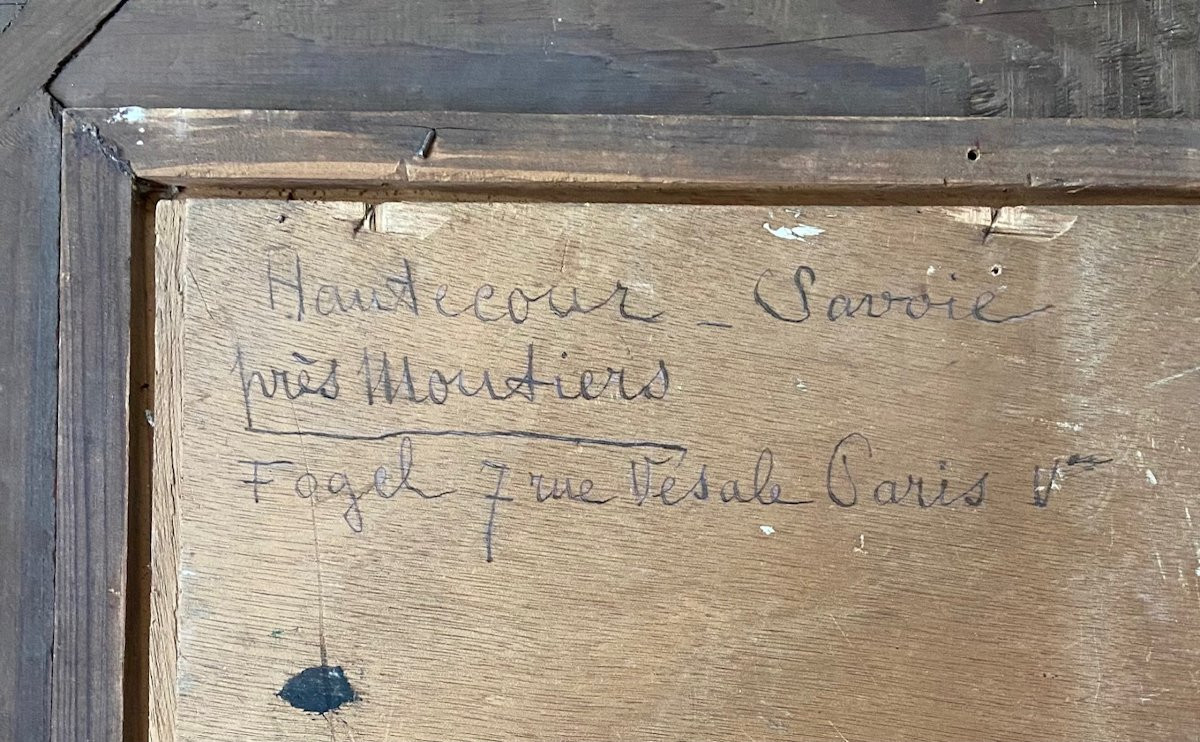 Hautecour _ Savoie
près Moutiers
Fogel 7 rue Vésale Paris Vme